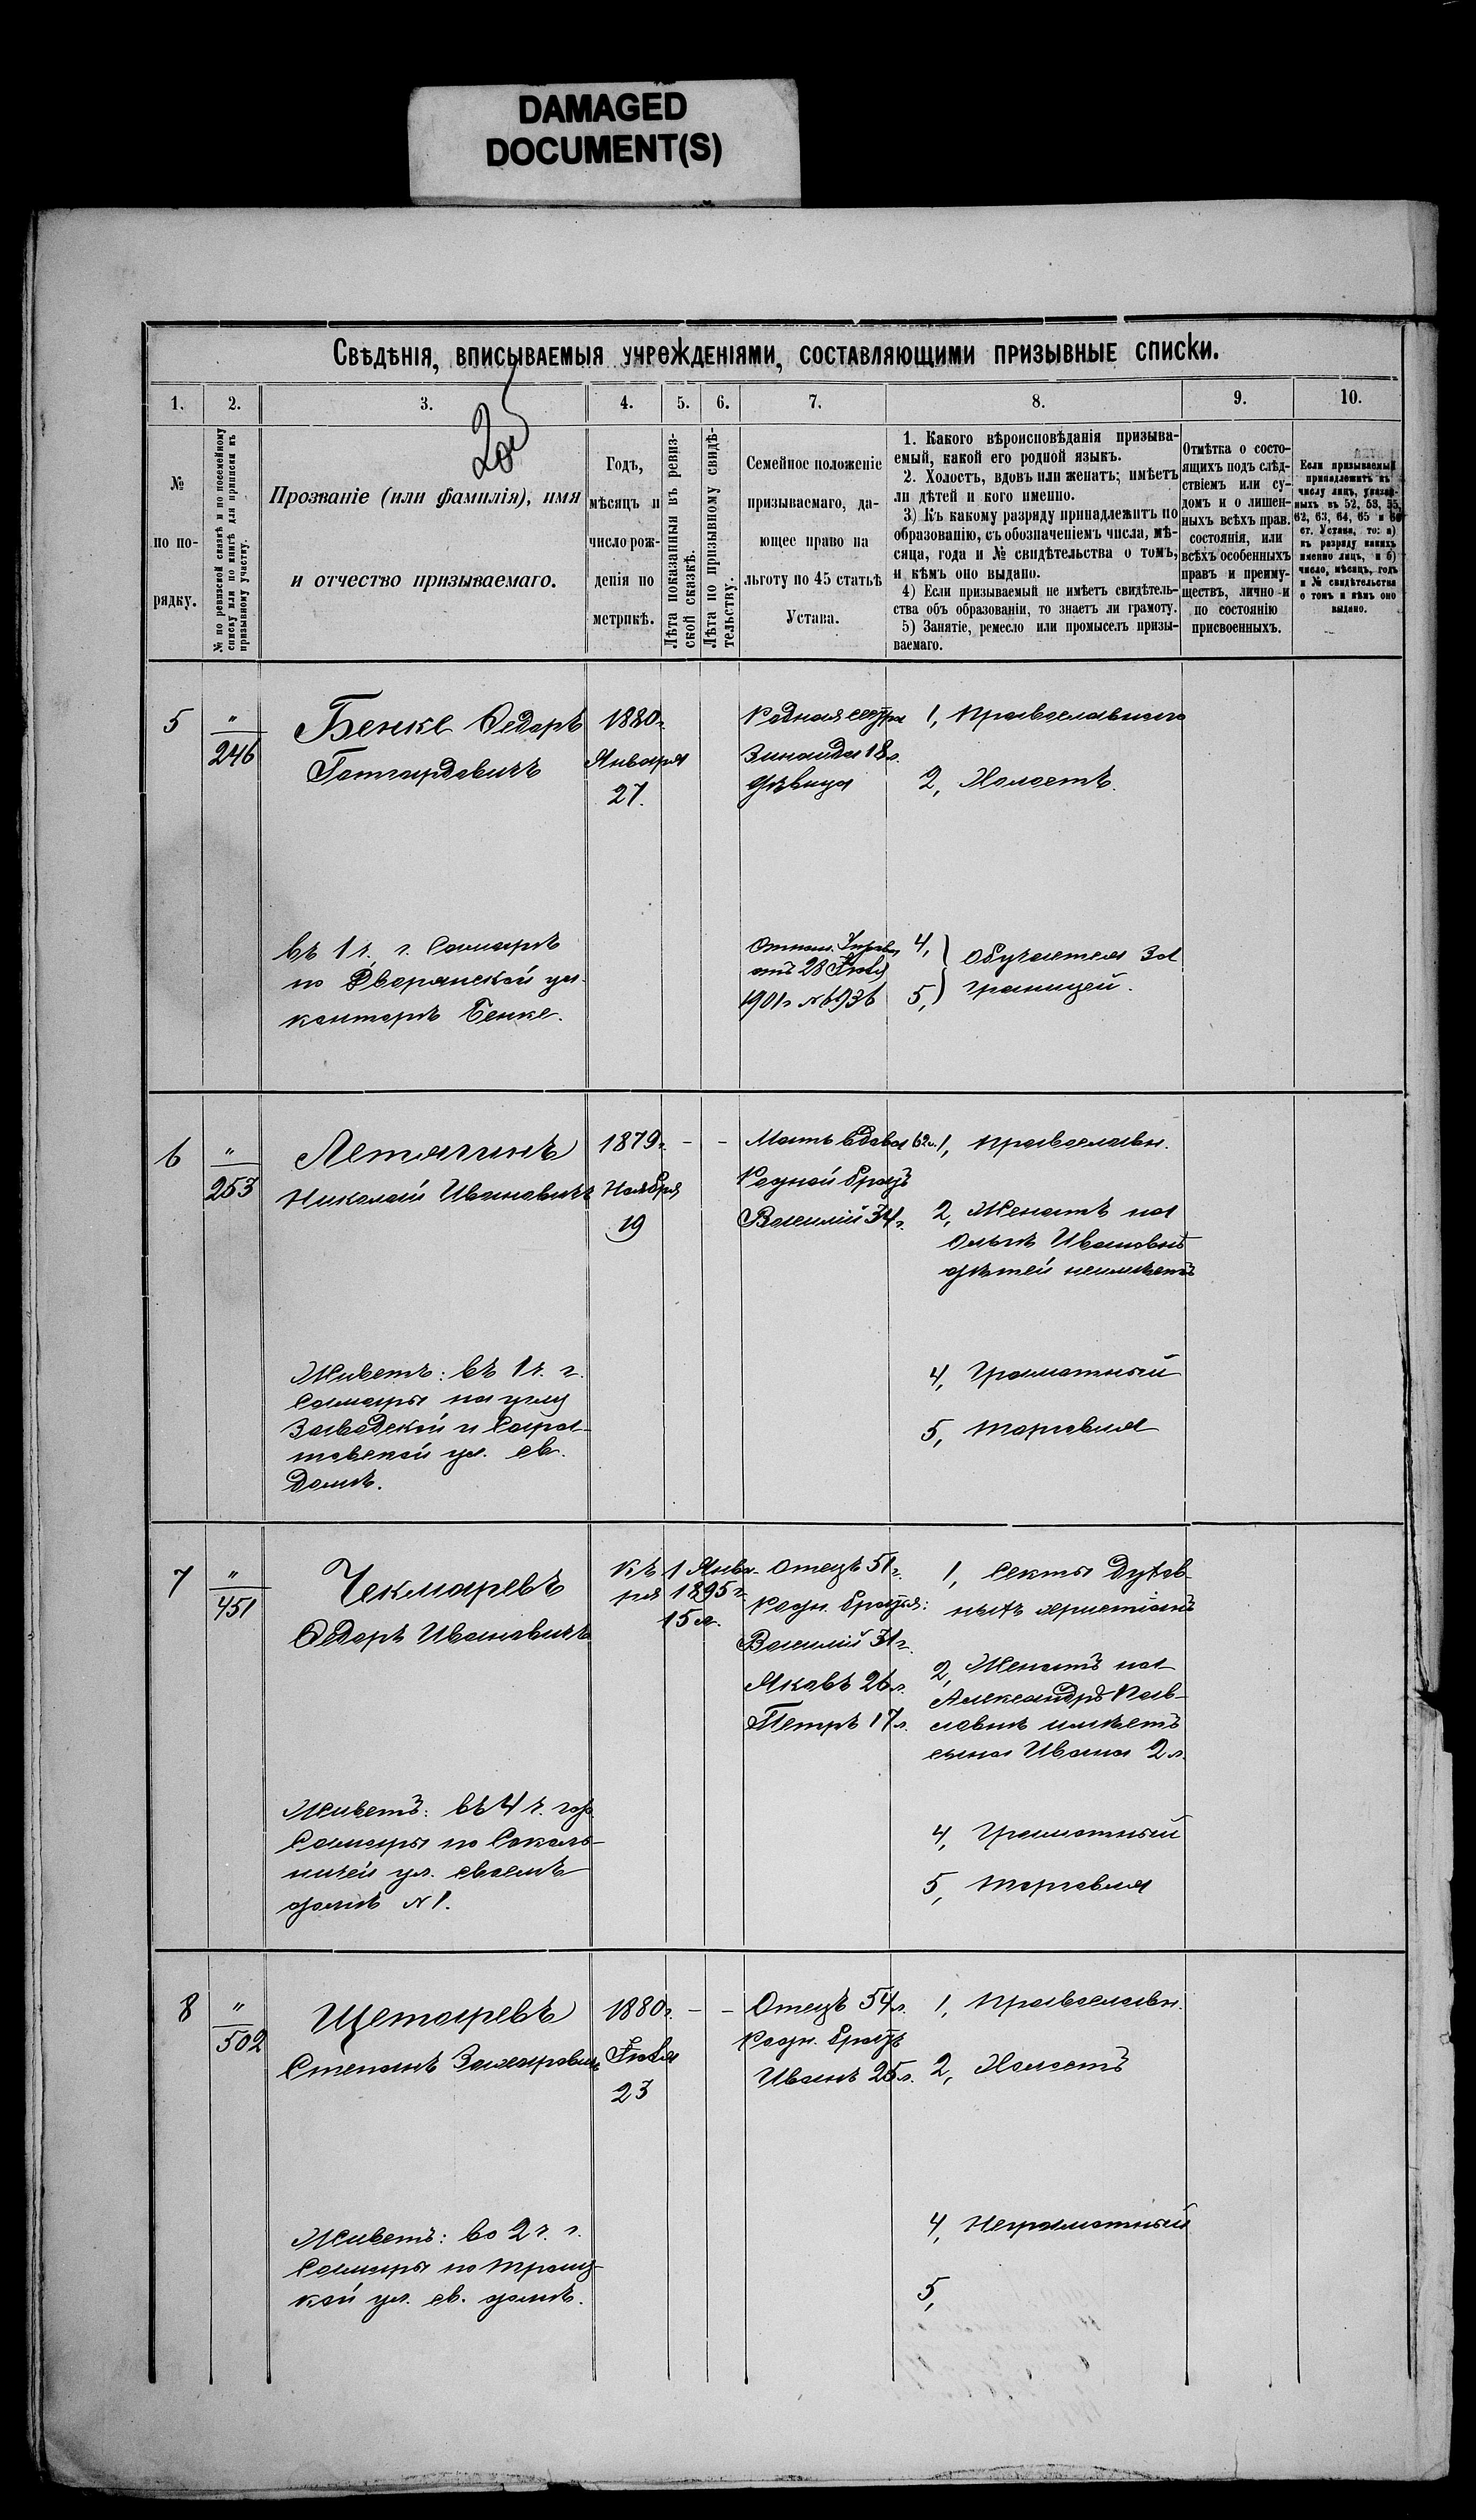 DAMAGED
DOCUMENT(S)
Свѣдѣнія, вписываемыя учрежденіями, составляющими призывные списки.
1. 2. 3. 4. 5. 6. 7. 8. 9. 10.
№
по по-
рядку.
№ по ревизской сказкѣ и по посемейному
списку или по книгѣ для приписки къ
призывному участку.
Прозваніе (или фамилія), имя
и отчество призываемаго.
Годъ,
мѣсяцъ и
число рож-
денія по
метрикѣ.
Лѣта показанныя въ ревиз-
ской сказкѣ.
Лѣта по призывному свидѣ-
тельству.
Семейное положеніе
призываемаго, да-
ющее право на
льготу по 45 статьѣ
Устава.
1. Какого вѣроисповѣданія призыва-
емый, какой его родной языкъ.
2. Холостъ, вдовъ или женатъ; имѣетъ
ли дѣтей и кого именно.
3) Къ какому разряду принадлежитъ по
образованію, съ обозначеніемъ числа, мѣ-
сяца, года и № свидѣтельства о томъ,
и кѣмъ оно выдано.
4) Если призываемый не имѣетъ свидѣтель-
ства объ образованіи, то знаетъ ли грамоту.
5) Занятіе, ремесло или промыселъ призы-
ваемаго.
Отмѣтка о состо-
ящихъ подъ слѣд-
ствіемъ или су-
домъ и о лишен-
ныхъ всѣхъ прав.
состоянія, или
всѣхъ особенныхъ
правъ и преиму-
ществъ, лично и
по состоянію
присвоенныхъ.
Если призываемый
принадлежитъ къ
числу лицъ, указан-
ныхъ въ 52, 53, 55,
62, 63, 64, 65 и 66
ст. Устава, то: а)
къ разряду какихъ
именно лицъ, и б)
число, мѣсяцъ, годъ
и № свидѣтельства
о томъ и кѣмъ оно
выдано.
5
"
246
Бенке Ѳедоръ
Готгардовичъ
1880 г.
Января
27.
Родная сестра
Зинаида 18 л.
дѣвица
1, Православнаго
2, Холостъ.
въ 1 ч. г. Самарѣ
по Дворянской ул.
конторѣ Бенке.
Отнош. Управы
отъ 28 Іюля
1901 г. № 6936
4,
5,
Обучается за
границей.
6
"
253
Летягинъ
Николай Ивановичъ
1879 г.
Ноября
19
- -
Мать вдова 62 л.
Родной братъ
Василій 34 г.
1, Православн.
2, Женатъ на
Ольгѣ Ивановнѣ
дѣтей неимѣетъ
Живетъ: въ 1 ч. г.
Самары на углу
Заводской и Сара-
товской ул. св.
домѣ.
4, Грамотный
5, Торговля
7
"
451
Чекмаревъ
Ѳедоръ Ивановичъ
Къ 1 Янва-
ря 1895 г.
15 л.
Отецъ 51 г.
Родн. братья:
Василій 31 г.
Яковъ 26 л.
Петръ 17 л.
1, Секты духов-
ныхъ христіанъ
2, Женатъ на
Александрѣ Пав-
ловнѣ имѣетъ
сына Ивана 2 л.
Живетъ: въ 4 ч. гор.
Самары по Соколь-
ничей ул. своемъ
домѣ № 1.
4, Грамотный
5, Торговля
8
"
502
Щетаревъ
Степанъ Захаровичъ
1880 г.
Іюля
23
- -
Отецъ 54 л.
Родн. братъ
Иванъ 25 л.
1, Православн.
2, Холостъ
Живетъ: во 2 ч. г.
Самары по Троиц-
кой ул. св. домѣ.
4, Неграмотный
5,